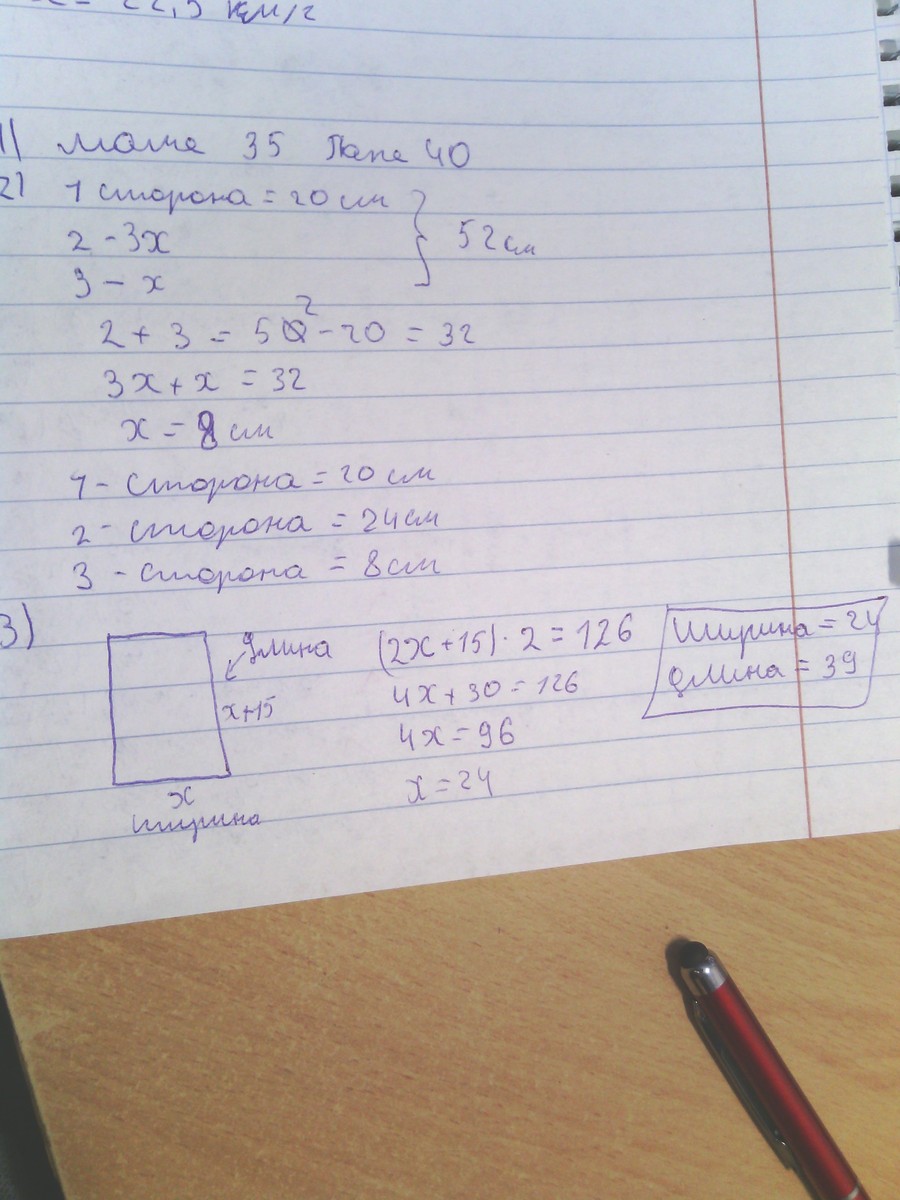 22,5 км/ч
1) Маме 35 Папе 40
2) 1 сторона = 20 см
2 - 3x
3 - x
} 52 см
2 + 3 = 52 - 20 = 32
3x + x = 32
x = 8 см
1 - сторона = 20 см
2 - сторона = 24 см
3 - сторона = 8 см
3)
длина
x+15
x
ширина
(2x+15) · 2 = 126
4x + 30 = 126
4x = 96
x = 24
Ширина = 24
длина = 39